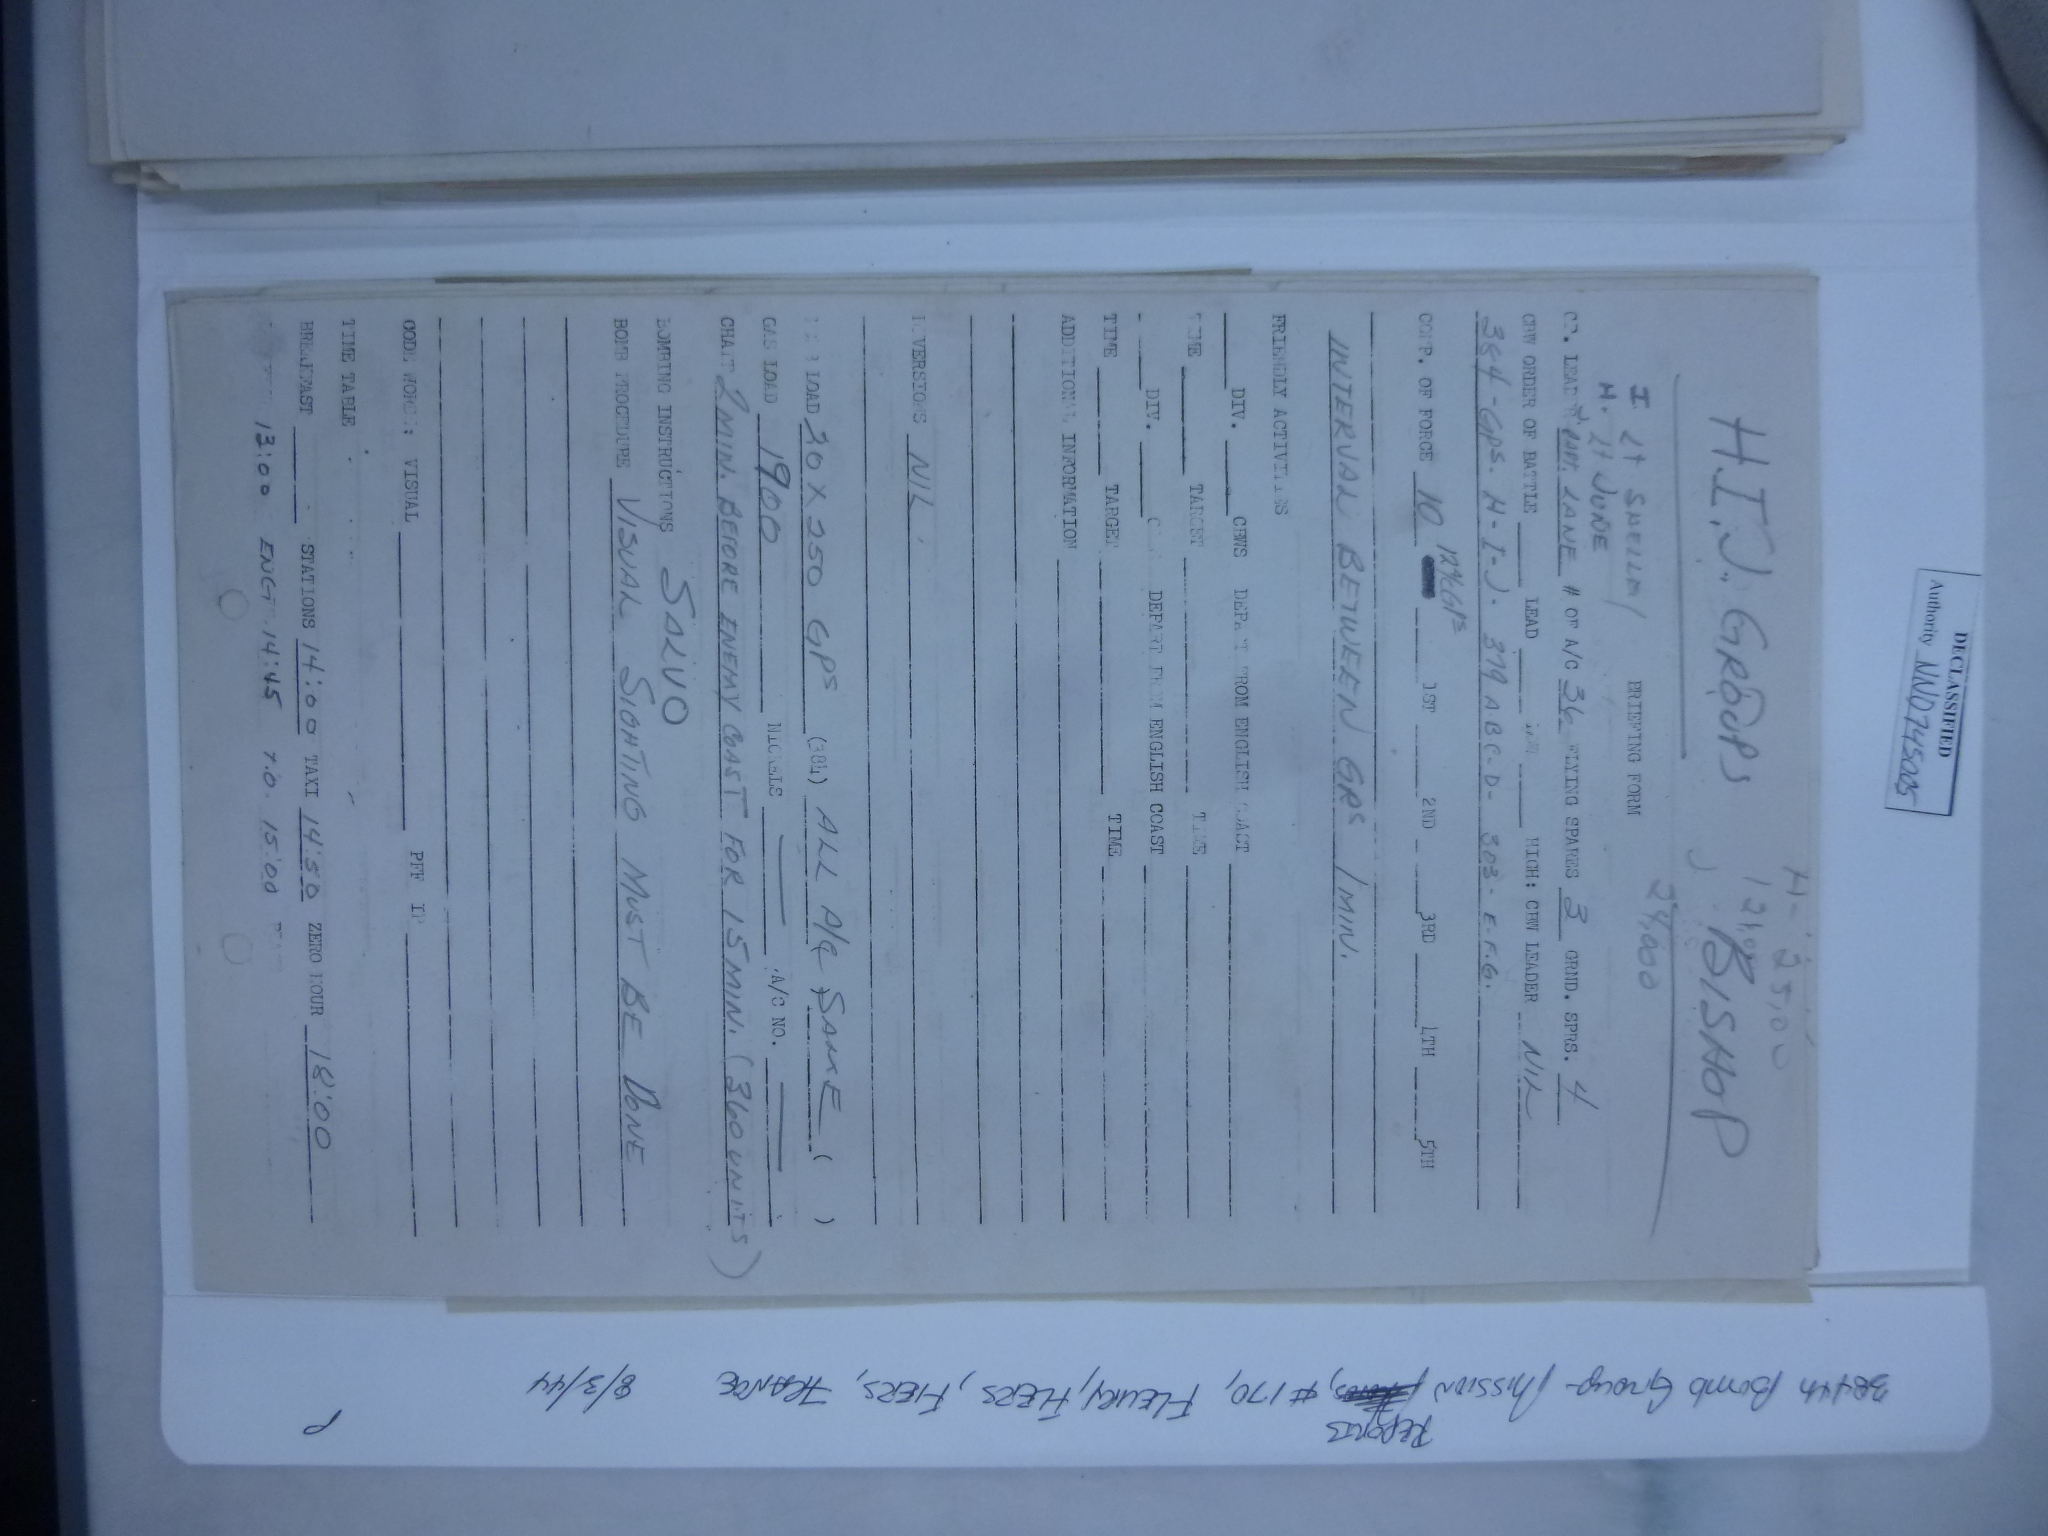 DECLASSIFIED
Authority NND745005
H- 25,00
12,0
H.I.J. GROUPS BISHOP
24,000
BRIEFING FORM
I LT SHELLEY
H. LT JUNE
LEAD CAPT. LANE # OF A/C 36 FLYING SPARES 3 GRND. SPRS. 4
CBW ORDER OF BATTLE LEAD LOW HIGH: CBW LEADER NIL
384-GPS. H-I-J. 379 A B C-D- 303-E.F.G.
COMP. OF FORCE 10 12 A/C GPS 1ST 2ND 3RD 4TH 5TH
INTERVAL BETWEEN GPS 1 MIN.
FRIENDLY ACTIVITIES
DIV. CBWS DEPART FROM ENGLISH COAST
TIME TARGET TIME
DIV. C DEPART FROM ENGLISH COAST
TIME TARGET TIME
ADDITIONAL INFORMATION
DIVERSIONS NIL.
BOMB LOAD 20 X 250 GPS (384) ALL A/C SAME ( )
GAS LOAD 1900 NICKELS A/C NO.
CHAFF 2 MIN. BEFORE ENEMY COAST FOR 15 MIN. (360 UNITS)
BOMBING INSTRUCTIONS SALVO
BOMB PROCEDURE VISUAL SIGHTING MUST BE DONE
CODE WORDS: VISUAL PFF
TIME TABLE
BREAKFAST STATIONS 14:00 TAXI 14:50 ZERO HOUR 18:00
13:00 ENG. 14:45 T.O. 15:00
384th Bomb Group- Mission Reports, #170, Fleury, Flers, Flers, France 8/3/44
P